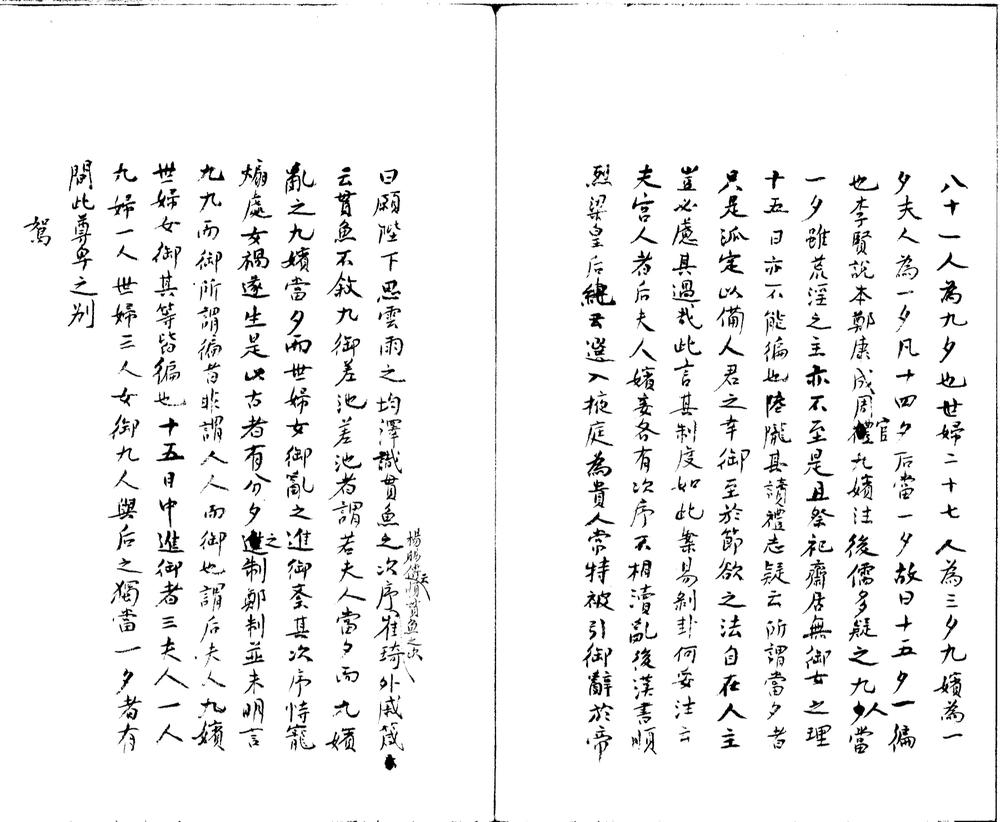 八十一人為九夕也世婦二十七人為三夕九嬪為一
夕夫人為一夕凡十四夕后當一夕故曰十五夕一徧
也李賢說本鄭康成周官九嬪注後儒多疑之九人當
一夕雖荒淫之主亦不至是且祭祀齋居無御女之理
十五日亦不能徧也陸隴其讀禮志疑云所謂當夕者
只是派定以備人君之幸御至於節欲之法自在人主
豈必慮其過哉此言其制度如此案易剝卦何妥注云
夫宮人者后夫人嬪妾各有次序不相瀆亂後漢書順
烈梁皇后紀云選入掖庭為貴人常特被引御辭於帝
曰願陛下思雲雨之均澤識貫魚之次序崔琦外戚箴
楊賜傳慎貫魚之次
云貫魚不敘九御差池差池者謂若夫人當夕而九嬪
亂之九嬪當夕而世婦女御亂之進御紊其次序恃寵
煽處女禍遂生是以古者有分夕之制鄭制並未明言
九九而御所謂徧者非謂人人而御也謂后夫人九嬪
世婦女御其等皆徧也十五日中進御者三夫人一人
九婦一人世婦三人女御九人與后之獨當一夕者有
間此尊卑之別
駕